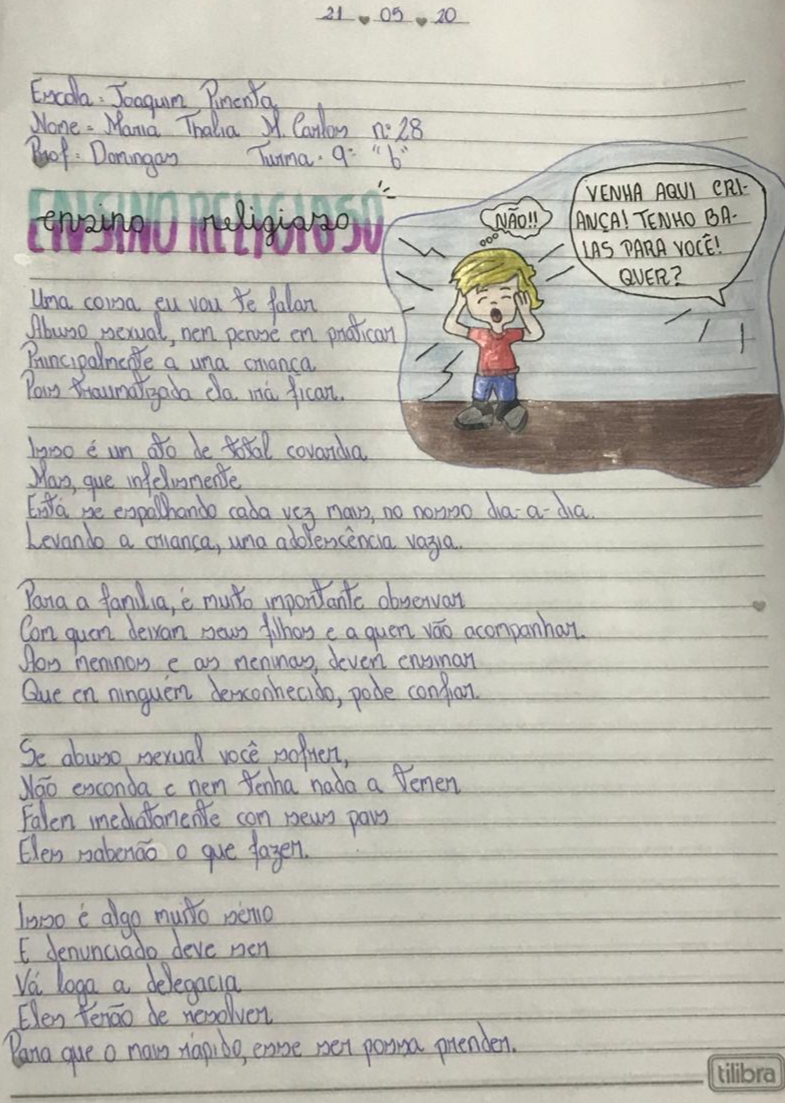 21 ♥ 05 ♥ 20
Escola: Joaquim Pimenta
Nome = Maria Thalia M. Carlos n: 28
Prof: Domingas Turma: 9º "b"
ENSINO RELIGIOSO
ensino religioso
NÃO!!
VENHA AQUI CRI-
ANÇA! TENHO BA-
LAS PARA VOCÊ!
QUER?
Uma coisa eu vou te falar
Abuso sexual, nem pense em praticar
Principalmente a uma criança
Pois traumatizada ela irá ficar.
Isso é um ato de total covardia
Mas, que infelismente
Está se espalhando cada vez mais, no nosso dia-a-dia.
Levando a criança, uma adolescência vazia.
Para a família, é muito importante observar
Com quem deixam seus filhos e a quem vão acompanhar.
Aos meninos e as meninas, devem ensinar
Que em ninguém desconhecido, pode confiar.
Se abuso sexual você sofrer,
Não esconda e nem tenha nada a temer
Falem imediatamente com seus pais
Eles saberão o que fazer.
Isso é algo muito sério
E denunciado deve ser
Vá loga a delegacia
Eles terão de resolver
Para que o mais rápido, esse ser possa prender.
tilibra